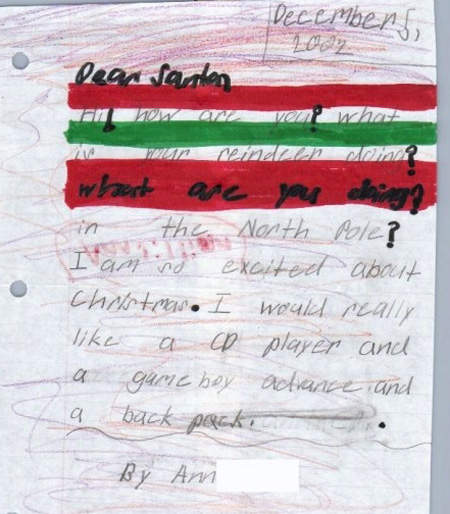 December 5,
2002
Dear Santa
Hi! how are you? what
is your reindeer doing?
what are you doing?
in the North Pole?
I am so excited about
Christmas. I would really
like a CD player and
a gameboy advance and
a back pack.
By Ann